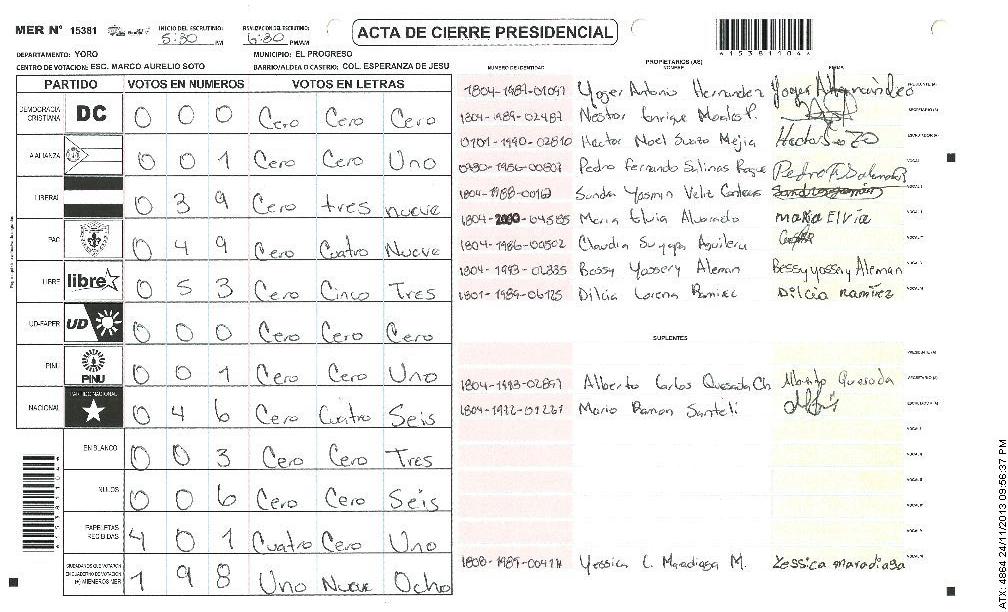 MER Nº 15381
INICIO DEL ESCRUTINIO: 5:30 PM
FINALIZACION DEL ESCRUTINIO: 6:30 PM/AM
ACTA DE CIERRE PRESIDENCIAL
DEPARTAMENTO: YORO
MUNICIPIO: EL PROGRESO
CENTRO DE VOTACION: ESC. MARCO AURELIO SOTO
BARRIO/ALDEA O CASERIO: COL. ESPERANZA DE JESU
PARTIDO VOTOS EN NUMEROS VOTOS EN LETRAS
DEMOCRACIA CRISTIANA DC 0 0 0 Cero Cero Cero
ALIANZA 0 0 1 Cero Cero Uno
LIBERAL 0 3 9 Cero tres nueve
PAC 0 4 9 Cero Cuatro Nueve
LIBRE libre 0 5 3 Cero Cinco Tres
UD-FAPER UD 0 0 0 Cero Cero Cero
PINU PINU 0 0 1 Cero Cero Uno
NACIONAL PARTIDO NACIONAL 0 4 6 Cero Cuatro Seis
EN BLANCO 0 0 3 Cero Cero Tres
NULOS 0 0 6 Cero Cero Seis
PAPELETAS RECIBIDAS 4 0 1 Cuatro Cero Uno
CIUDADANOS QUE VOTARON EN CUADERNO DE VOTACION (+) MIEMBROS MER 1 9 8 Uno Nueve Ocho
PROPIETARIOS (AS)
NUMERO DE IDENTIDAD NOMBRE FIRMA
Yoger Antonio Hernandez Yoger A Hernández
1804-1989-02487 Nestor Enrique
0101-1990-02810 Hector Noel Suazo Mejia
Pedro Fernando Salinas
1804-1988-00162 Yasmin Veliz
Maria Elvia Alvarado maria Elvia
1804-1986-00502 Claudia Suyapa Aguilera
1804-1993-02335 Bessy Yossery Aleman Bessy yossery Aleman
1801-1989-06125 Dilcia Lorena Ramirez Dilcia Ramírez
SUPLENTES
1804-1993-02897 Alberto Carlos Quesada Ch Alberto Quesada
Mario Ramon
Yessica L. Maradiaga M. Yessica maradiaga
ATX: 4864 24/11/2013 09:56:37 PM